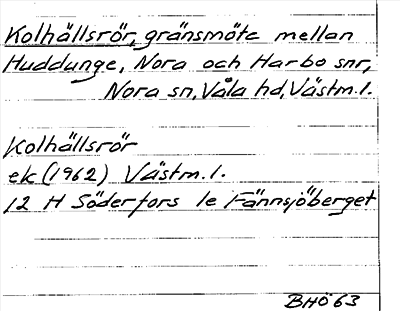 Kolhällsrör, gränsmöte mellan
Huddunge, Nora och Harbo snr,
Nora sn, Våla hd, Västm. l.
Kolhällsrör
ek (1962) Västm. l.
12 H Söderfors 1e Fännsjöberget
BHÖ 63